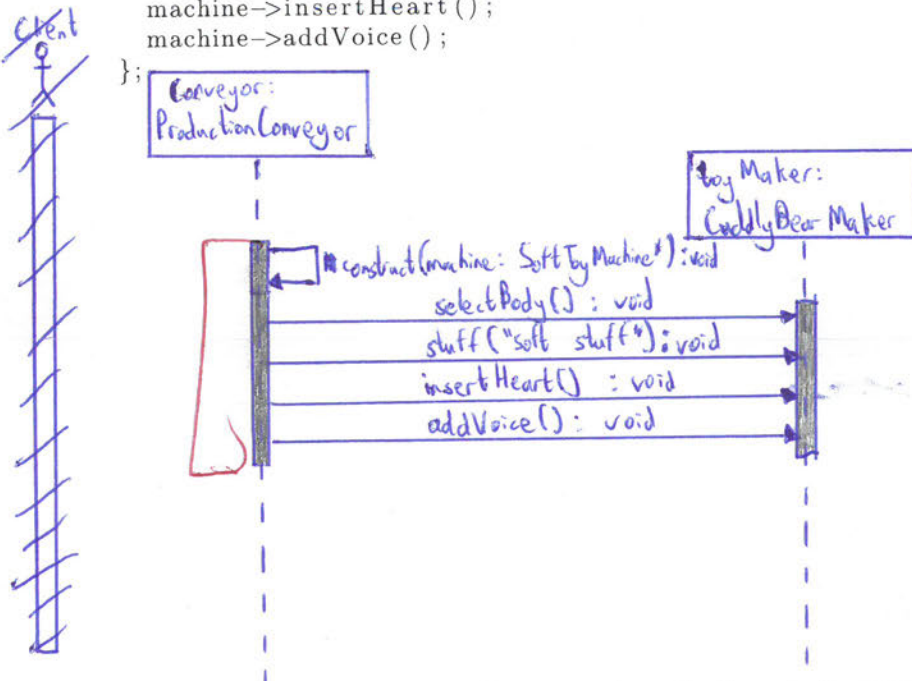 machine->insertHeart();
machine->addVoice();
};
Client
Conveyor:
ProductionConveyor
toyMaker:
CuddlyBearMaker
construct(machine: SoftToyMachine*): void
selectBody() : void
stuff("soft stuff"): void
insertHeart() : void
addVoice() : void